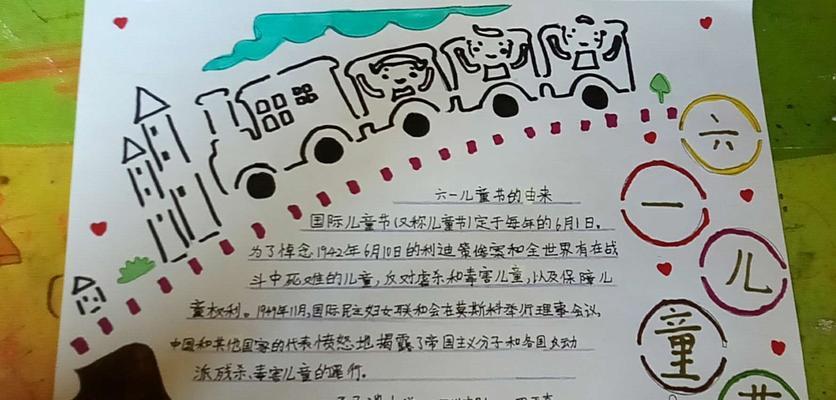 六一儿童节的由来
国际儿童节(又称儿童节)定于每年的6月1日。
为了悼念1942年6月10日的利迪策惨案和全世界有在战
斗中死难的儿童,反对虐杀和毒害儿童,以及保障儿
童权利。1949年11月,国际民主妇女联和会在莫斯科举行理事会议,
中国和其他国家的代表愤怒地揭露了帝国主义分子和各国反动
派残杀、毒害儿童的罪行。
六
一
儿
童